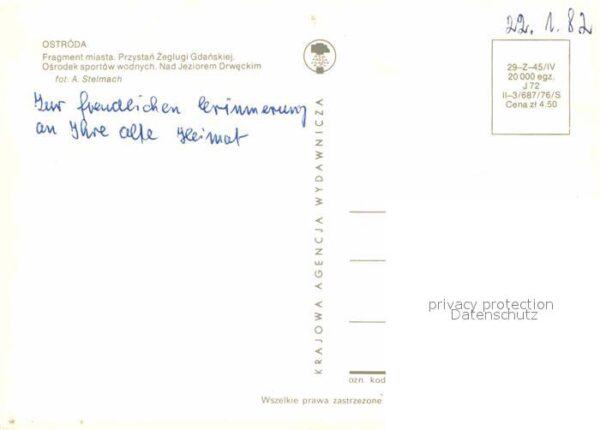 22. 1. 82
OSTRÓDA
Fragment miasta. Przystań Żeglugi Gdańskiej.
Ośrodek sportów wodnych. Nad Jeziorem Drwęckim
fot. A. Stelmach
29-Z-45/IV
20 000 egz.
J 72
II-3/687/76/S
Cena zł 4.50
Zur freudlichen Erinnerung
an Ihre alte Heimat
KRAJOWA AGENCJA WYDAWNICZA
privacy protection
Datenschutz
ozn. kod
Wszelkie prawa zastrzeżone